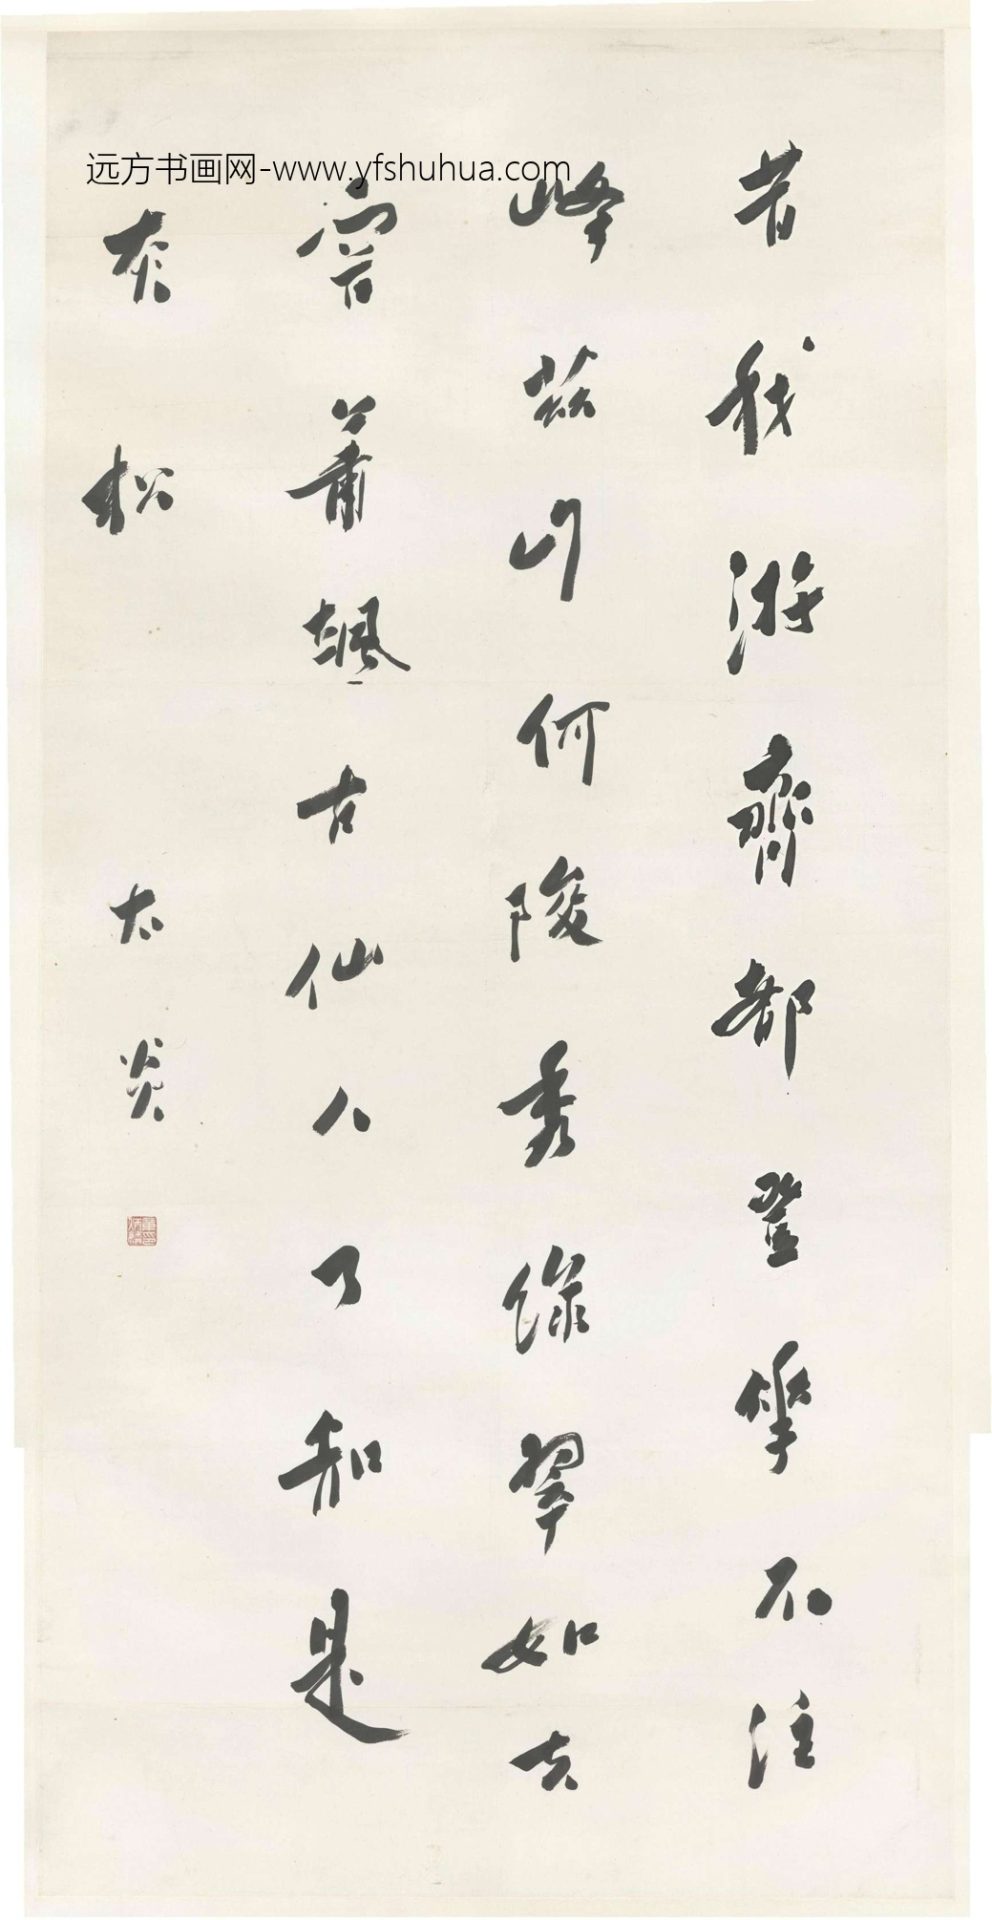 远方书画网-www.yfshuhua.com
昔我游齊都登華不注
峰茲山何陖秀綠翠如夫
容蕭颯古仙人了知是
赤松 太炎